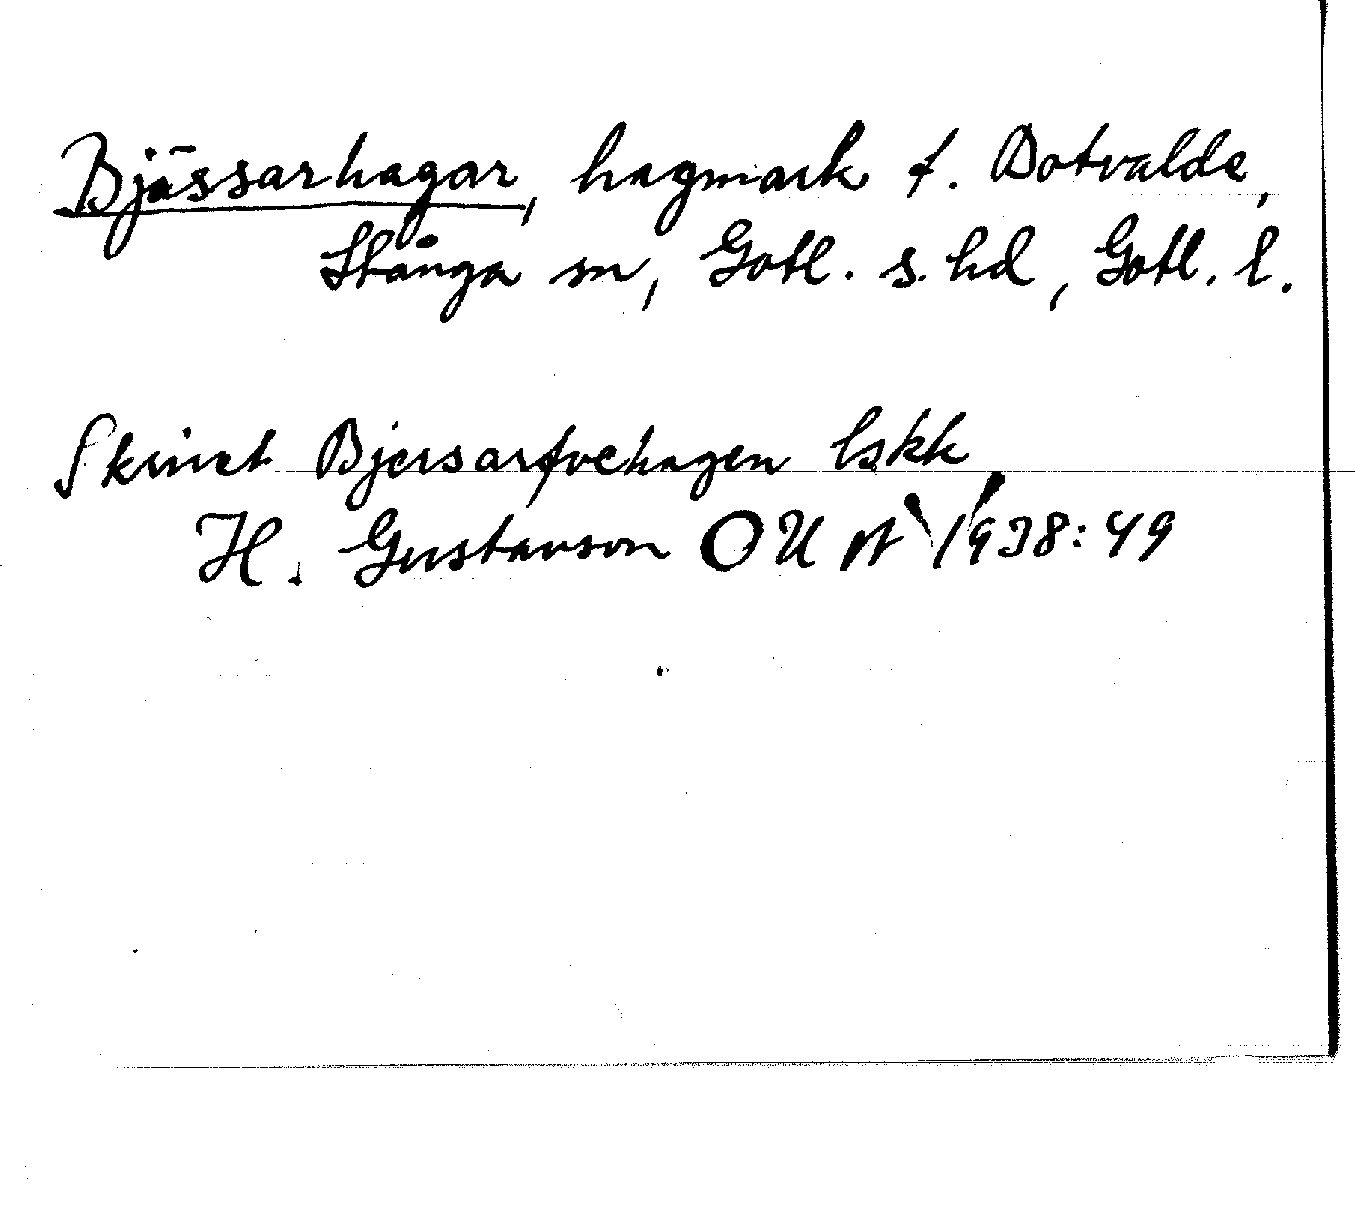 Bjässarhagar, hagmark t. Botvalde,
Stånga sn, Gotl. s. hd, Gotl. l.
Skrivet Bjersarfvehagen lskk
H. Gustavson OUA 1938:49